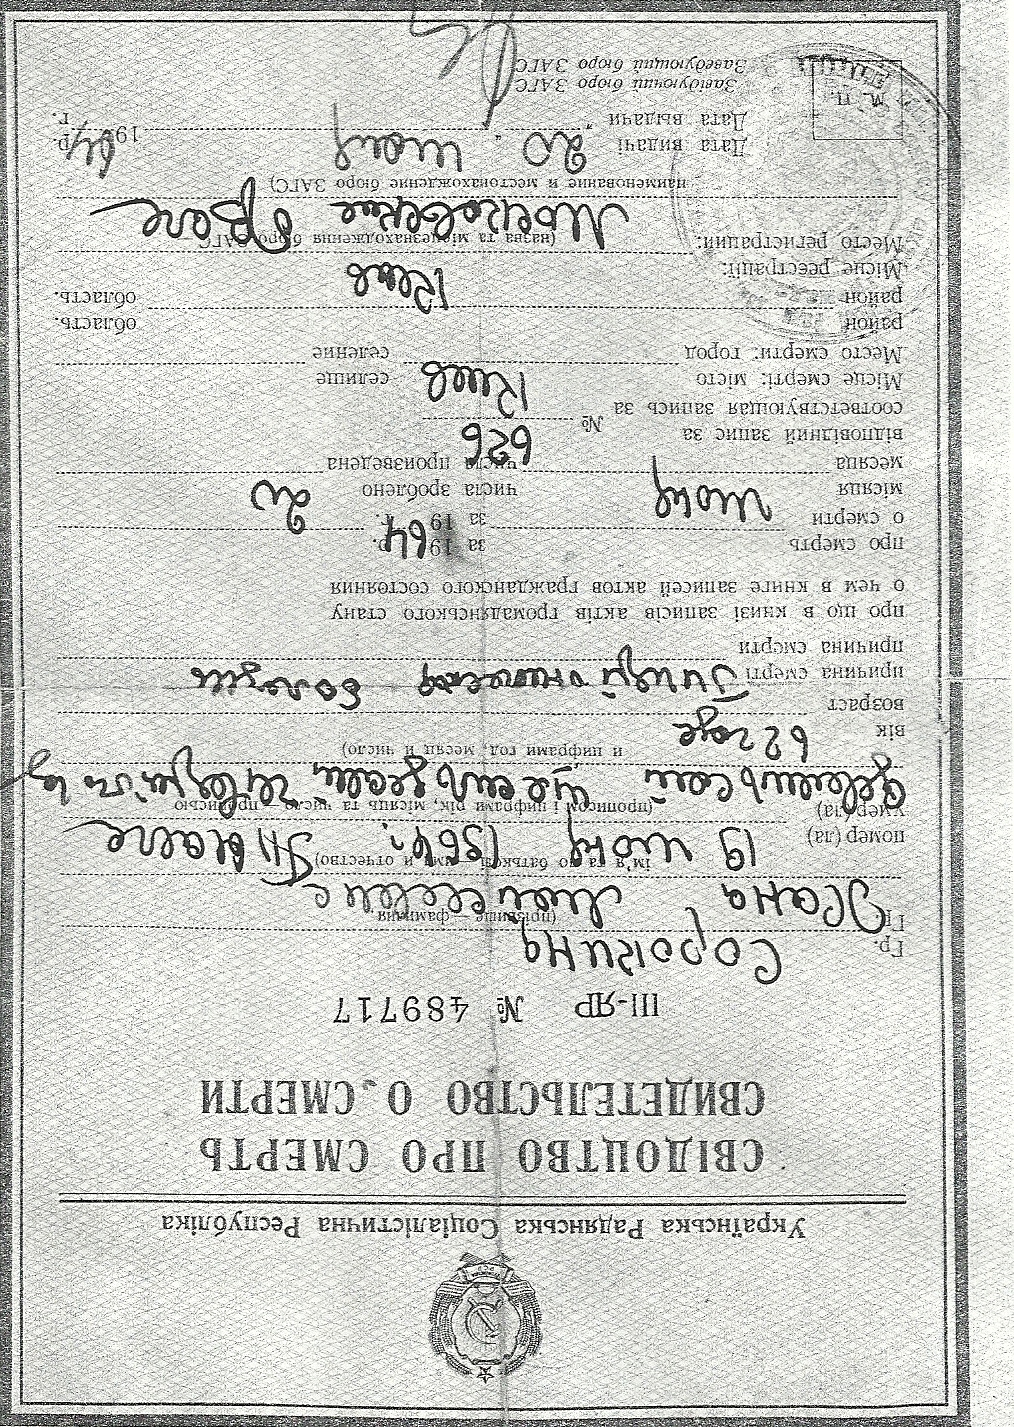 Українська Радянська Соціалістична Республіка
СВІДОЦТВО ПРО СМЕРТЬ
СВИДЕТЕЛЬСТВО О СМЕРТИ
III-ЯР № 489717
Гр. Сорокина
(прізвище — фамилия)
Гр. Хана Моисеевна
ім'я та по батькові — имя и отчество)
помер (ла) 19 июня 1964 г. Тысяча
умер (ла)
(прописом і цифрами рік, місяць та число — прописью
девятьсот шестьдесят четвертого
и цифрами год, месяц и число)
вік 62 года
возраст
причина смерті болезнь
причина смерти
про що в книзі записів актів громадянського стану
о чем в книге записей актов гражданского состояния
про смерть за 1964 р.
о смерти за 19 г. 20
місяця июня числа зроблено
месяца числа произведена
відповідний запис за № 626
соответствующая запись за
Місце смерті: місто Киев селище
Место смерти: город селение
район область.
район область.
Місце реєстрації: Киев
Место регистрации:
(назва та місцезнаходження бюро ЗАГС —
Московское
наименование и местонахождение бюро ЗАГС)
Дата видачі „20 июня 1964 р.
Дата выдачи „ г.
М. П.
Завідуючий бюро ЗАГС
Заведующий бюро ЗАГС